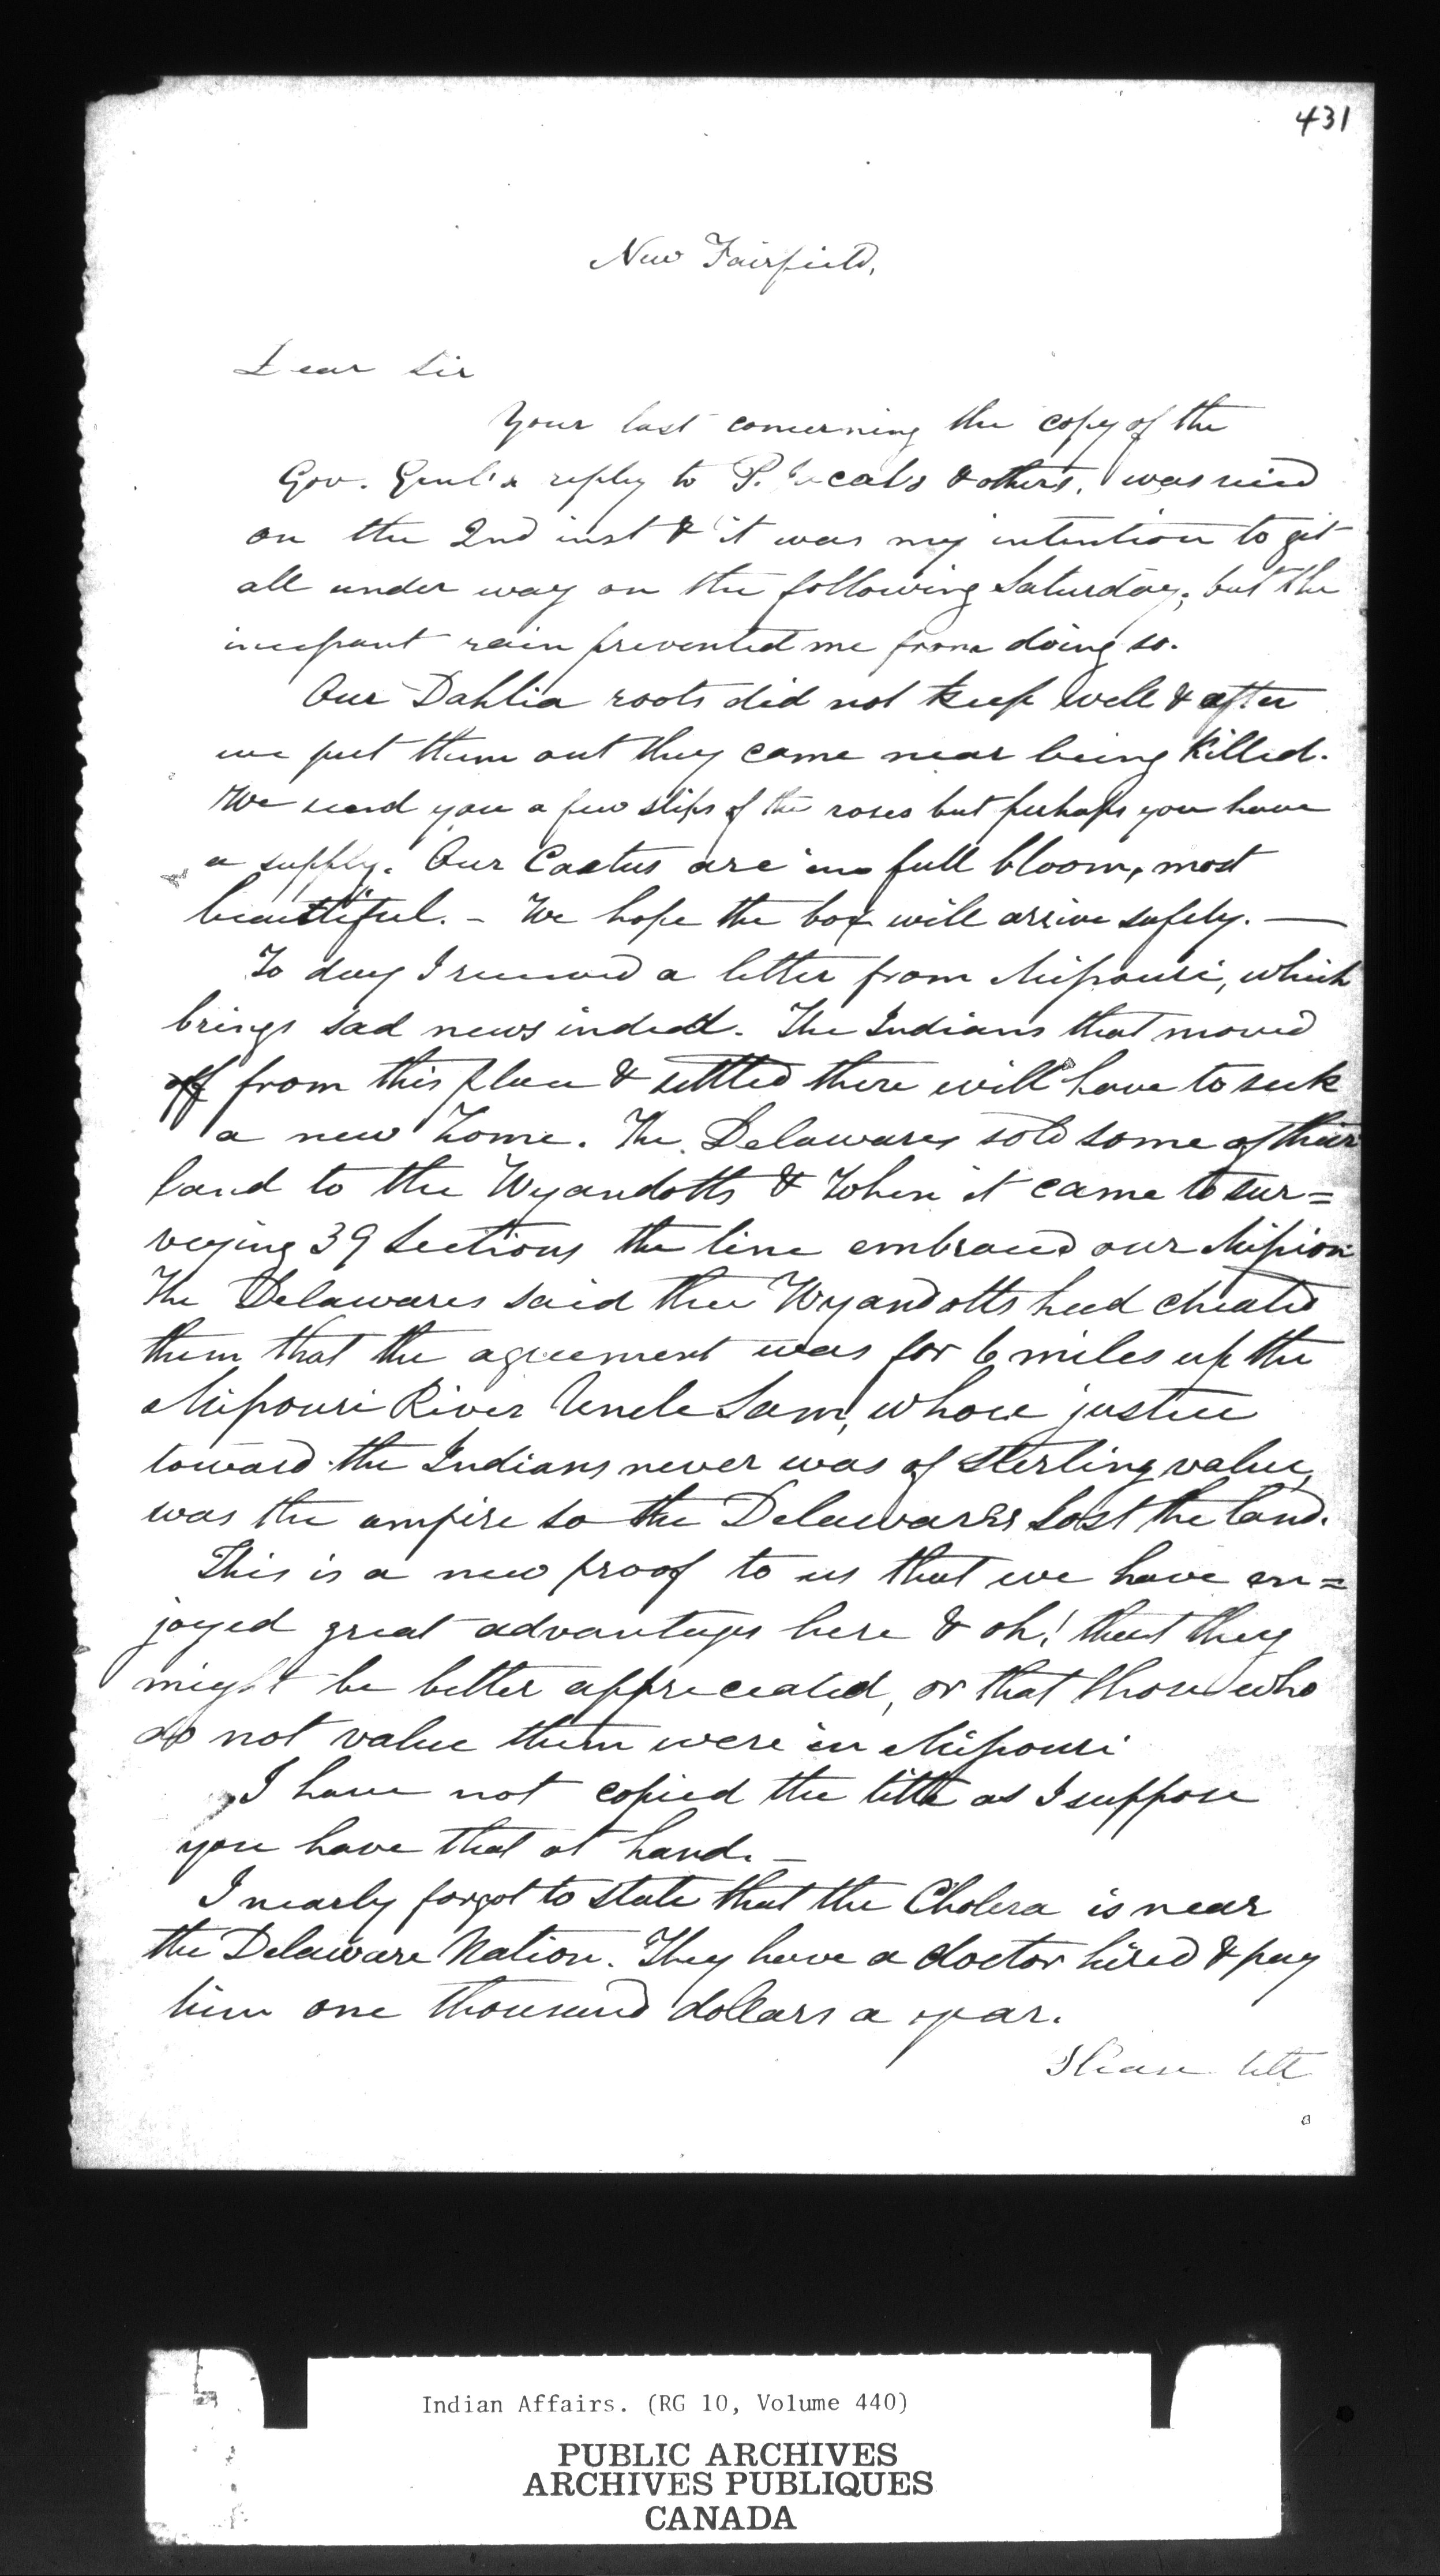 431
New Fairfield,
Dear Sir
Your last concerning the copy of the
Gov. Genl's reply to P. & others, was recd
on the 2nd inst & it was my intention to get
all under way on the following Saturday; but the
incessant rain prevented me from doing so.
Our Dahlia roots did not keep well & after
we put them out they came near being killed.
We send you a few slips of the roses but perhaps you have
a supply. Our Cactus are in full bloom, most
beautiful. - We hope the box will arrive safely. —
To day I received a letter from Missouri, which
brings sad news indeed. The Indians that moved
off from this place & settled there will have to seek
a new home. The Delawares sold some of their
land to the Wyandotts & when it came to sur=
veying 39 Sections the line embraced our Mission
The Delawares said the Wyandotts had cheated
them that the agreement was for 6 miles up the
Missouri River Uncle Sam, whose justice
toward the Indians never was of sterling value,
was the umpire so the Delawares lost the land.
This is a new proof to us that we have en=
joyed great advantages here & oh! that they
might be better appreceated, or that those who
do not value them were in Missouri
I have not copied the title as I suppose
you have that at hand. —
I nearly forgot to state that the Cholera is near
the Delaware Nation. They have a doctor hired & pay
him one thousand dollars a year.
Please
Indian Affairs. (RG 10, Volume 440)
PUBLIC ARCHIVES
ARCHIVES PUBLIQUES
CANADA